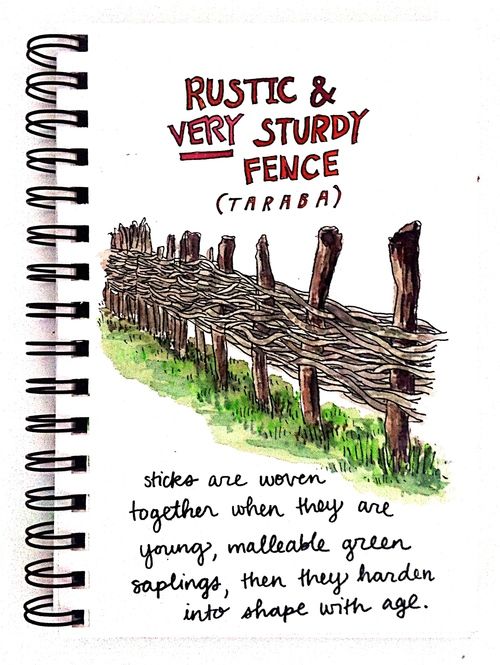 RUSTIC &
VERY STURDY
FENCE
(TARABA)
sticks are woven
together when they are
young, malleable green
saplings, then they harden
into shape with age.